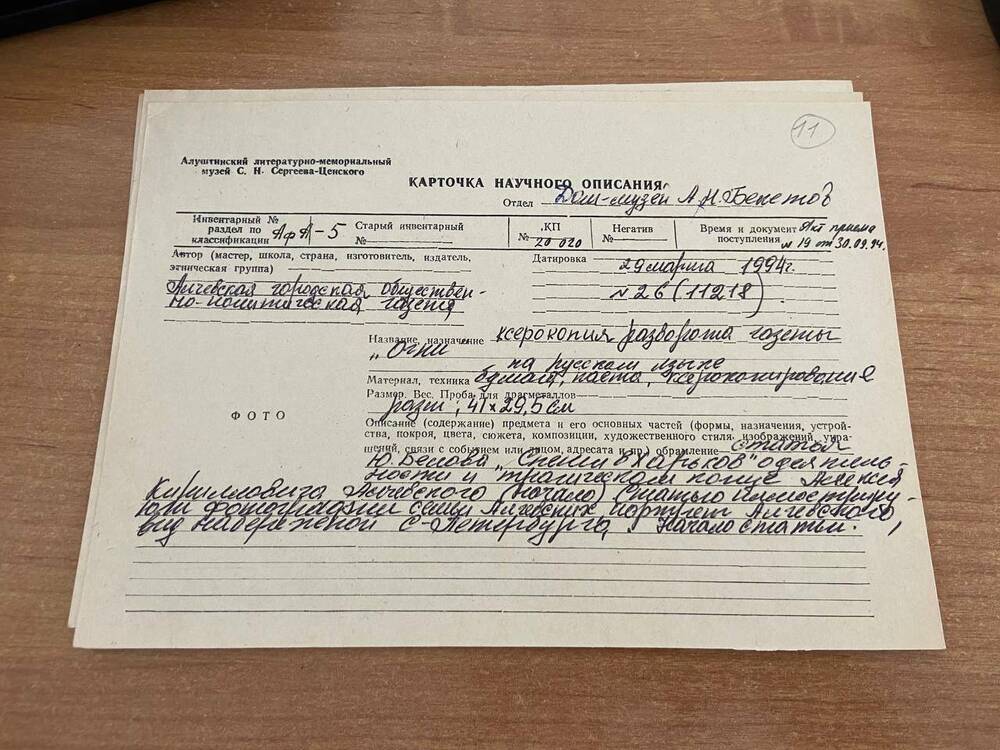 11
Алуштинский литературно-мемориальный
музей С. Н. Сергеева-Ценского
КАРТОЧКА НАУЧНОГО ОПИСАНИЯ
Отдел Дом-музей А.Н.Бекетов
Инвентарный №
раздел по
классификации АфА-5
Старый инвентарный
№
КП
№ 20 020
Негатив
№
Время и документ Акт приема
поступления № 19 от 30.09.94.
Автор (мастер, школа, страна, изготовитель, издатель,
этническая группа)
Алчевская городская обществен-
но-политическая газета
Датировка 29 марта 1994г.
№ 26 (11218)
Название, назначение ксерокопия разворота газеты
"Огни"
на русском языке
Материал, техника бумага, паста, ксерокопирование
Размер. Вес. Проба для драгметаллов
разм; 41×29,5 см
ФОТО
Описание (содержание) предмета и его основных частей (формы, назначения, устрой-
ства, покроя, цвета, сюжета, композиции, художественного стиля, изображений, укра-
шений, связи с событием или лицом, адресата и пр.) обрамление статья
Ю.Белова "Спеши в Харьков" о деятель-
ности и трагическом конце Алексея
Кирилловича Алчевского (начало) Статью иллюстриру-
ют фотографии семьи Алчевских портрет Алчевского
вид набережной С-Петербурга, Начало статьи.